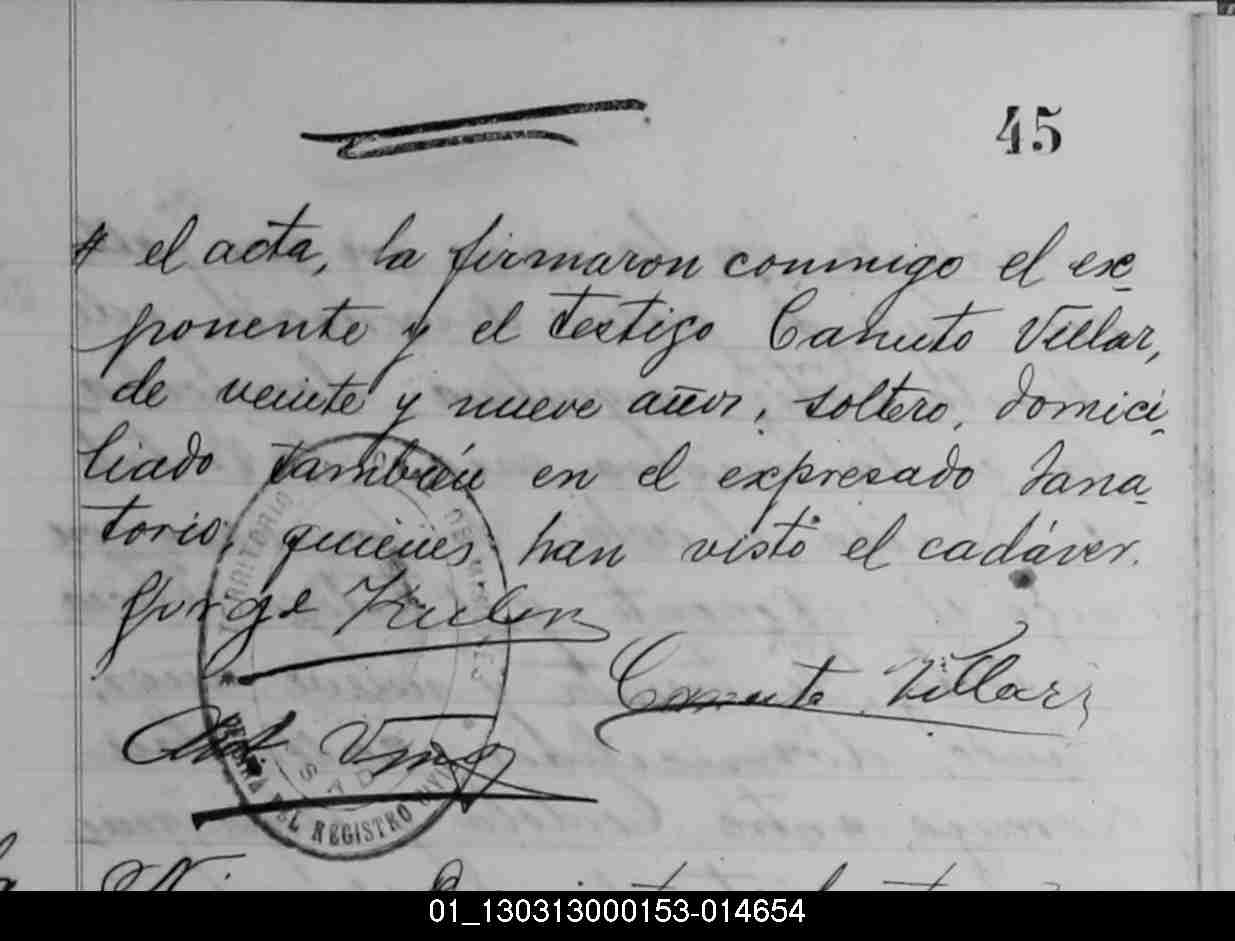 45
el acta, la firmaron conmigo el ex-
ponente y el testigo Canuto Villar,
de veinte y nueve años, soltero, domici-
liado también en el expresado Sana-
torio, quienes han visto el cadáver.
Jorge
Canuto Villar
REGISTRO CIVIL
01_130313000153-014654